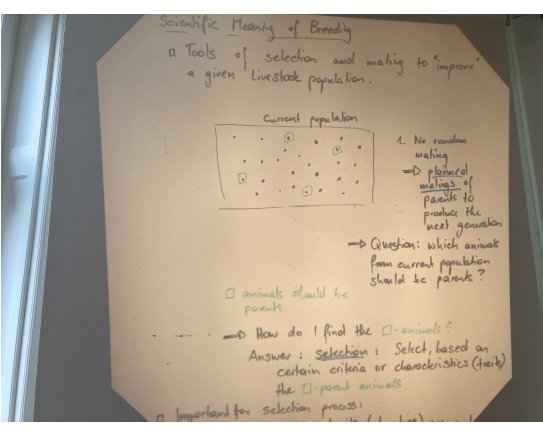 Scientific Meaning of Breeding
□ Tools of selection and mating to "improve"
a given Livestock population.
Current population
1. No random
mating
⇒ planned
matings of
parents to
produce the
next generation
⇒ Question: which animals
from current population
should be parents?
□ animals should be
parents
⇒ How do I find the □-animals?
Answer: selection: Select, based on
certain criteria or characteristics (traits)
the □-parent animals.
□ Important for selection process: